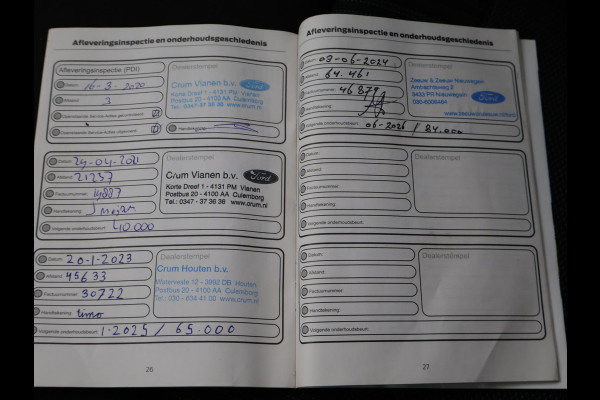 Afleveringsinspectie en onderhoudsgeschiedenis
Afleveringsinspectie (PDI)
Datum: 16-3-2020
Afstand: 3
Handtekening:
Dealerstempel
Crum Vianen b.v. Ford
Korte Dreef 1 - 4131 PM Vianen
Postbus 20 - 4100 AA Culemborg
Tel.: 0347 - 37 36 36 www.crum.nl
Datum: 29-04-2021
Afstand: 21237
Factuurnummer: 19887
Handtekening:
Volgende onderhoudsbeurt: 40.000
Dealerstempel
Crum Vianen b.v. Ford
Korte Dreef 1 - 4131 PM Vianen
Postbus 20 - 4100 AA Culemborg
Tel.: 0347 - 37 36 36 www.crum.nl
Datum: 20-1-2023
Afstand: 45633
Factuurnummer: 30722
Handtekening: timo
Volgende onderhoudsbeurt: 1-2025 / 65.000
Dealerstempel
Crum Houten b.v.
Waterveste 12 - 3992 DB Houten
Postbus 20 - 4100 AA Culemborg
Tel.: 030 - 634 41 00 www.crum.nl
26
Afleveringsinspectie en onderhoudsgeschiedenis
Datum: 03-06-2024
Afstand: 64.461
Factuurnummer: 46879
Handtekening:
Volgende onderhoudsbeurt: 06-2026 / 84.000
Dealerstempel
Zeeuw & Zeeuw Nieuwegein
Ambachtsweg 2
Ford
Datum:
Afstand:
Factuurnummer:
Handtekening:
Volgende onderhoudsbeurt:
Dealerstempel
Datum:
Afstand:
Factuurnummer:
Handtekening:
Volgende onderhoudsbeurt:
Dealerstempel
27